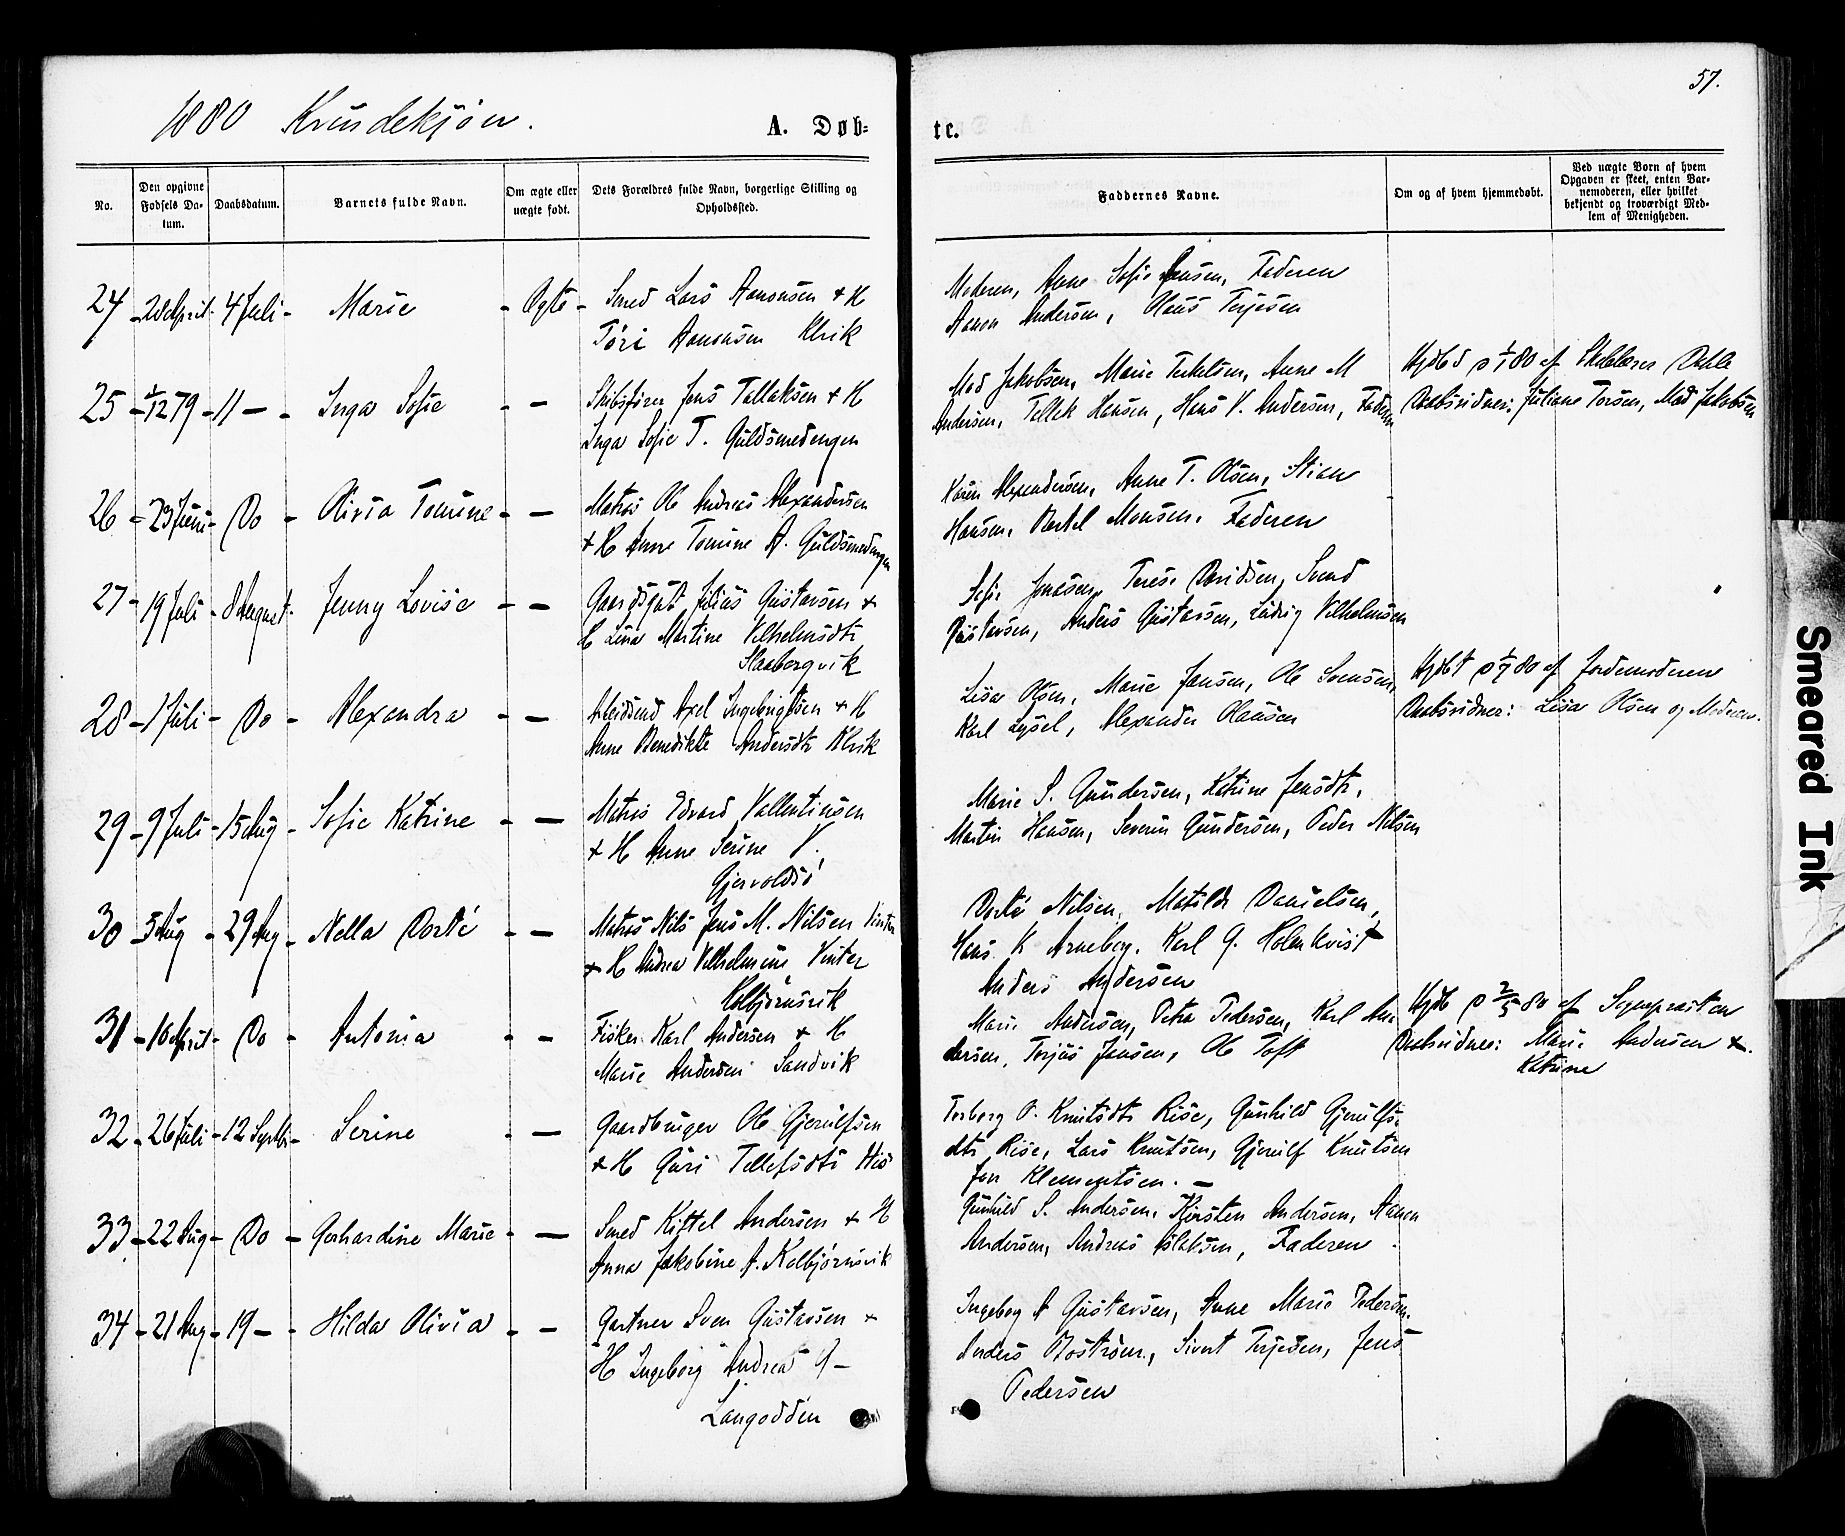 57.
1880 Kvindekjøn.
A. Døb-
te.
No.
Den opgivne Fødsels Da-tum.
Daabsdatum.
Barnets fulde Navn.
Om ægte eller uægte født.
Dets Forældres fulde Navn, borgerlige Stilling og Opholdssted.
Faddernes Navne.
Om og af hvem hjemmedøbt.
Ved uægte Born af hvem Opgaven er skeet, enten Bar-nemoderen, eller hvilket bekjendt og troværdigt Med-lem af Menigheden.
24 - 28 April - 4 Juli - Marie - Ægte - Smed Lars Aanonsen + H
Töri Aanonsen Utvik
Moderen, Anne Sofie Hansen, Faderen
Aanon Andersen, Terjesen
25 - 1/12 79 - 11 - - Inga Sofie - - Skibsfører Jens Tallaksen + H
Inga Sofie T. Guldsmedengen
Jakobsen, Marie Terkelsen, Anne M
Andersen, Tellek Hansen, Hans V. Andersen, Faderen
Hjdbt 80 af Skolelærer Dahle
Daabsvidner: Juliane Torsen, Jakobsen
26 - 23 Juni - Do - Olivia Tomine - - Matros Ole Andreas Alexandersen
+ H Anne Tomine A. Guldsmedengen
Karen Alexandersen, Anne T. Olsen, Stian
Hansen, Bertel Monsen, Faderen
27 - 19 Juli - 8 August - Jenny Lovise - - Gaardsgut Julius Gustavsen +
H Lina Martine Vilhelmsdtr
Staaborgvik
Sofie Jonasen, Terese Davidsen, Svend
Gustavsen, Anders Gustavsen, Ludvig Vilhelmsen
28 - 1 Juli - Do - Alexandra - - Arbeidsmd Axel Ingebrigtsen + H
Anne Benedikte Andersdtr Utvik
Lisa Olsen, Marie Jansen, Ole Svensen,
Karl Lysel, Alexander Clausen
Hjdbt 80 af Jordemoderen
Daabsvidner: Lisa Olsen og Moderen.
29 - 9 Juli - 15 Aug - Sofie Katrine - - Matros Edvard Vallentinsen
+ H Anne Serine V.
Gjervoldsö
Marie S. Gundersen, Katrine Jensdtr,
Martin Hansen, Severin Gundersen, Peder Nilsen
30 - 5 Aug - 29 Aug - Nella Dorté - - Matros Nils Jens M. Nilsen Vinter
+ H Andrea Vilhelmine Vinter
Kolbjörnsvik
Dorté Nilsen, Matilde Danielsen,
Hans K Arneberg, Karl G. Holmkvist
Anders Andersen
31 - 16 April - Do - Antonia - - Fisker Karl Andersen + H
Marie Andersen Sandvik
Marie Andersen, Petra Pedersen, Karl An-
dersen, Terjus Jensen, Ole Toft
Hjdb 2/5 80 af Sognepresten
Daabsvidner: Marie Andersen +
Katrine
32 - 26 Juli - 12 Septbr - Serine - - Gaardbruger Ole Gjerulfsen
+ H Guri Tellefsdtr His
Torborg O. Knutsdtr Rise, Gunhild Gjerulfs-
dtr Rise, Lars Knutsen, Gjerulf Knutsen
Jon Klementsen. -
33 - 22 Aug - Do - Gerhardine Marie - - Smed Kittel Andersen + H
Anna Jakobine A. Kolbjörnsvik
Gunhild S. Andersen, Kirsten Andersen, Aanon
Andersen, Andreas Faderen
34 - 21 Aug - 19 - - Hilda Olivia - - Gartner Sven Gustavsen +
H Ingeborg Andrea G -
Langodden
Ingeborg A Gustavsen, Anne Marie Pedersen,
Anders Boström, Sivert Terjesen, Jens
Pedersen
Smeared Ink